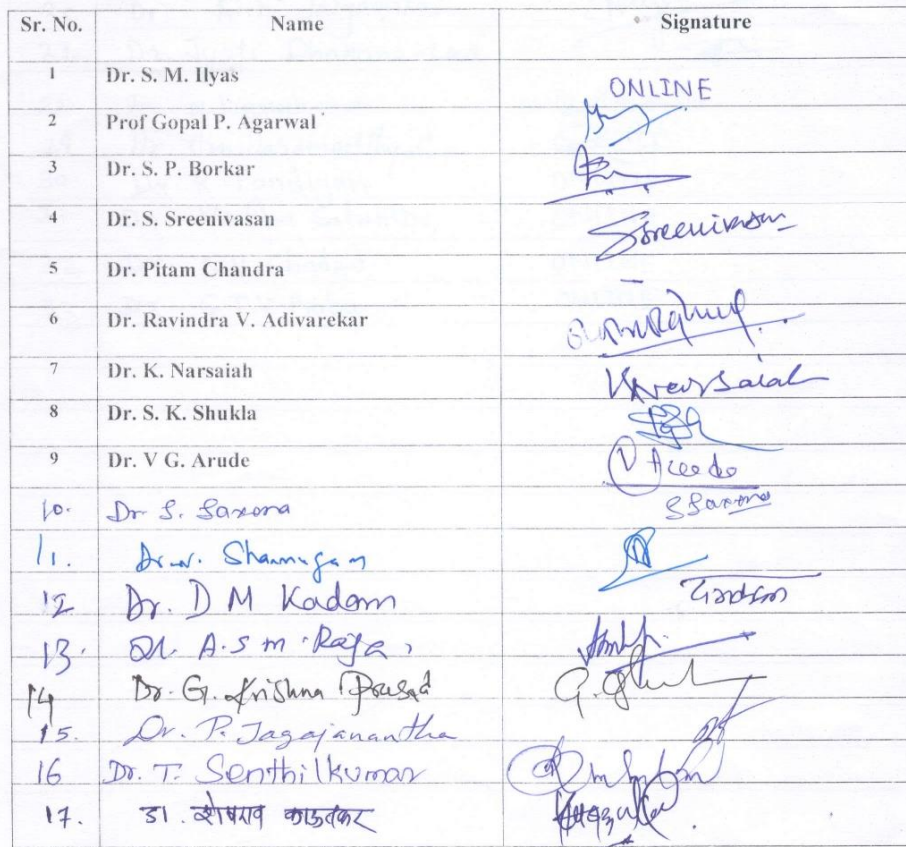 Sr. No. Name Signature
1 Dr. S. M. Ilyas ONLINE
2 Prof Gopal P. Agarwal
3 Dr. S. P. Borkar
4 Dr. S. Sreenivasan Sreenivasan
5 Dr. Pitam Chandra -
6 Dr. Ravindra V. Adivarekar
7 Dr. K. Narsaiah KNarsaiah
8 Dr. S. K. Shukla
9 Dr. V G. Arude V Arude
10. Dr S. Saxena SSaxena
11. Dr. N. Shanmugam
12 Dr. D M Kadam
13. Dr. A. S m. Raja
14 Dr. G. Krishna Prasad
15. Dr. P. Jagajanantha
16 Dr. T. Senthilkumar
17. डा. शेषराव काऊतकर